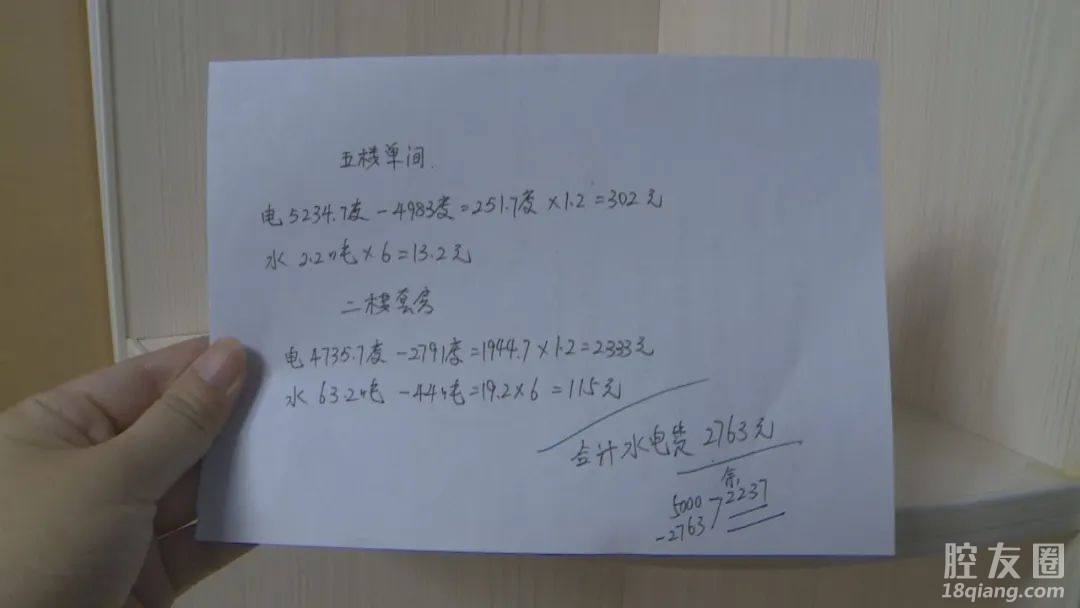 五楼单间.
电 5234.7度 - 4983度 = 251.7度 × 1.2 = 302 元
水 2.2吨 × 6 = 13.2元
二楼套房
电 4735.7度 - 2791度 = 1944.7 × 1.2 = 2333元
水 63.2吨 - 44吨 = 19.2 × 6 = 115元
合计水电费 2763元
余
5000
2237
-2763
腔友圈
18qiang.com